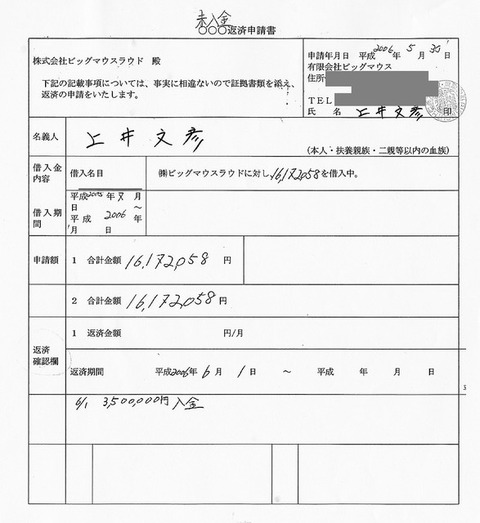 未入金
○○○返済申請書
株式会社ビッグマウスラウド 殿
下記の記載事項については、事実に相違ないので証拠書類を添え、
返済の申請をいたします。
申請年月日 平成2006年 5月 30日
有限会社ビッグマウス
住所
TEL
氏 名 上井文彦 印
名義人 上井文彦
(本人・扶養親族・二親等以内の血族)
借入金
内容
借入名目
㈱ビッグマウスラウドに対し16,172,058を借入中。
借入期
間
平成2005年8月
日 ~
平成 2006年
月 日
申請額 1 合計金額 16,172,058 円
2 合計金額 16,172,058 円
返済
確認欄
1 返済金額 円/月
返済期間 平成2006年 6月 1日 ~ 平成 年 月 日
6/1 3,500,000円 入金